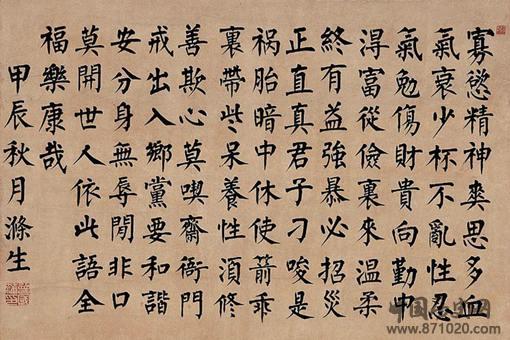 寡慾精神爽思多血
氣衰少杯不亂性忍
氣勉傷財貴向勤中
淂富從儉裏來温柔
終有益強暴必招災
正直真君子刁唆是
祸胎暗中休使箭乖
裏帶些呆養性湏修
善欺心莫喫齋衙門
戒出入鄉黨要和諧
安分身無辱閒非口
莫開世人依此語全
福樂康哉
甲辰秋月滌生
www.871020.com